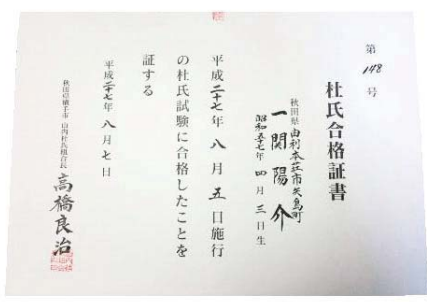 第148号
杜氏合格証書
秋田県由利本荘市矢島町
一関陽介
昭和五十七年四月三日生
平成二十七年八月五日施行
の杜氏試験に合格したことを
証する
平成二十七年八月七日
秋田県横手市 山内杜氏組合長 高橋良治